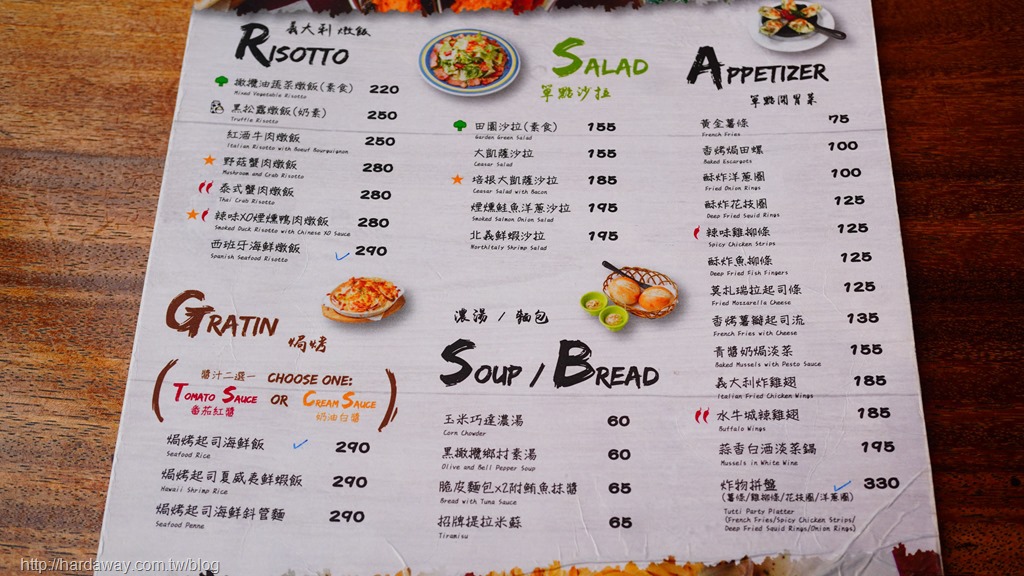 RISOTTO 義大利燉飯
橄欖油蔬菜燉飯(素食) 220
Mixed Vegetable Risotto
黑松露燉飯(奶素) 250
Truffle Risotto
紅酒牛肉燉飯 250
Italian Risotto with Boeuf Bourguignon
野菇蟹肉燉飯 280
Mushroom and Crab Risotto
泰式蟹肉燉飯 280
Thai Crab Risotto
辣味XO煙燻鴨肉燉飯 280
Smoked Duck Risotto with Chinese XO Sauce
西班牙海鮮燉飯 290
Spanish Seafood Risotto
GRATIN
焗烤
醬汁二選一 CHOOSE ONE:
TOMATO SAUCE OR CREAM SAUCE
番茄紅醬 奶油白醬
焗烤起司海鮮飯 290
Seafood Rice
焗烤起司夏威夷鮮蝦飯 290
Hawaii Shrimp Rice
焗烤起司海鮮斜管麵 290
Seafood Penne
SALAD
單點沙拉
田園沙拉(素食) 155
Garden Green Salad
大凱薩沙拉 155
Ceasar Salad
培根大凱薩沙拉 185
Ceasar Salad with Bacon
煙燻鮭魚洋蔥沙拉 195
Smoked Salmon Onion Salad
北義鮮蝦沙拉 195
NorthItaly Shrimp Salad
濃湯 / 麵包
SOUP / BREAD
玉米巧達濃湯 60
Corn Chowder
黑橄欖鄉村素湯 60
Olive and Bell Pepper Soup
脆皮麵包x2附鮪魚抹醬 65
Bread with Tuna Sauce
招牌提拉米蘇 65
Tiramisu
APPETIZER
單點開胃菜
黃金薯條 75
French Fries
香烤焗田螺 100
Baked Escargots
酥炸洋蔥圈 100
Fried Onion Rings
酥炸花枝圈 125
Deep Fried Squid Rings
辣味雞柳條 125
Spicy Chicken Strips
酥炸魚柳條 125
Deep Fried Fish Fingers
莫扎瑞拉起司條 125
Fried Mozzarella Cheese
香烤薯瓣起司流 135
French Fries with Cheese
青醬奶焗淡菜 155
Baked Mussels with Pesto Sauce
義大利炸雞翅 185
Italian Fried Chicken Wings
水牛城辣雞翅 185
Buffalo Wings
蒜香白酒淡菜鍋 195
Mussels in White Wine
炸物拼盤 330
(薯條/雞柳條/花枝圈/洋蔥圈)
Tutti Party Platter
(French Fries/Spicy Chicken Strips/
Deep Fried Squid Rings/Onion Rings)
http://hardaway.com.tw/blog